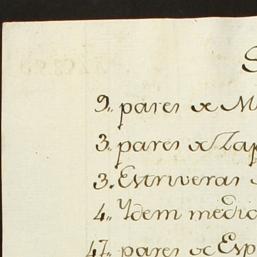 9,, pares de M
3,, pares de Zap
3,, Estriveras
4,, Ydem medic
47,, pares de Esp